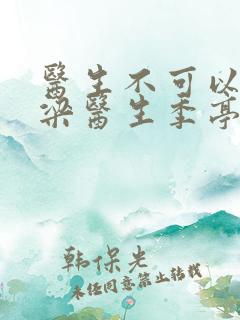 醫生不可以
梁醫生季亭
韩保光
未经同意禁止转载